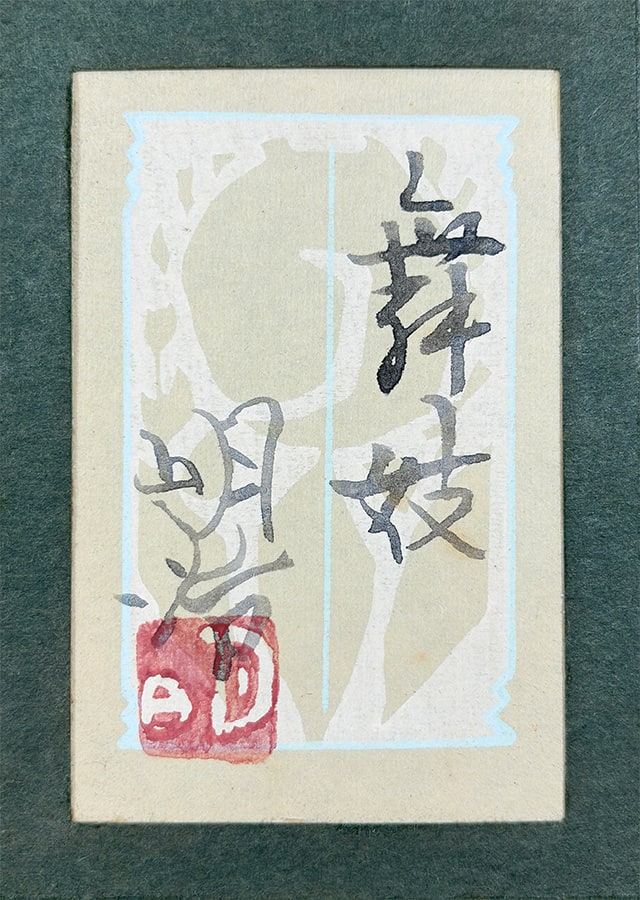 舞妓
明治